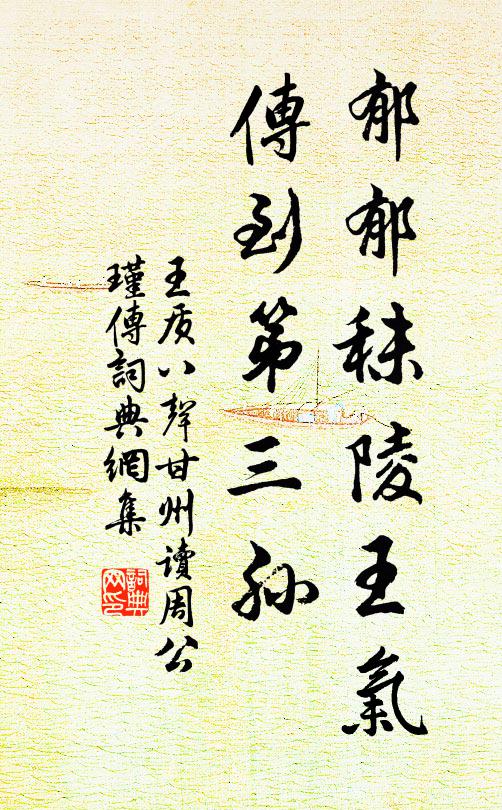 郁郁秣陵王氣
傳到第三孙
王质八聲甘州讀周公
瑾傳詞典網集
詞典
网印